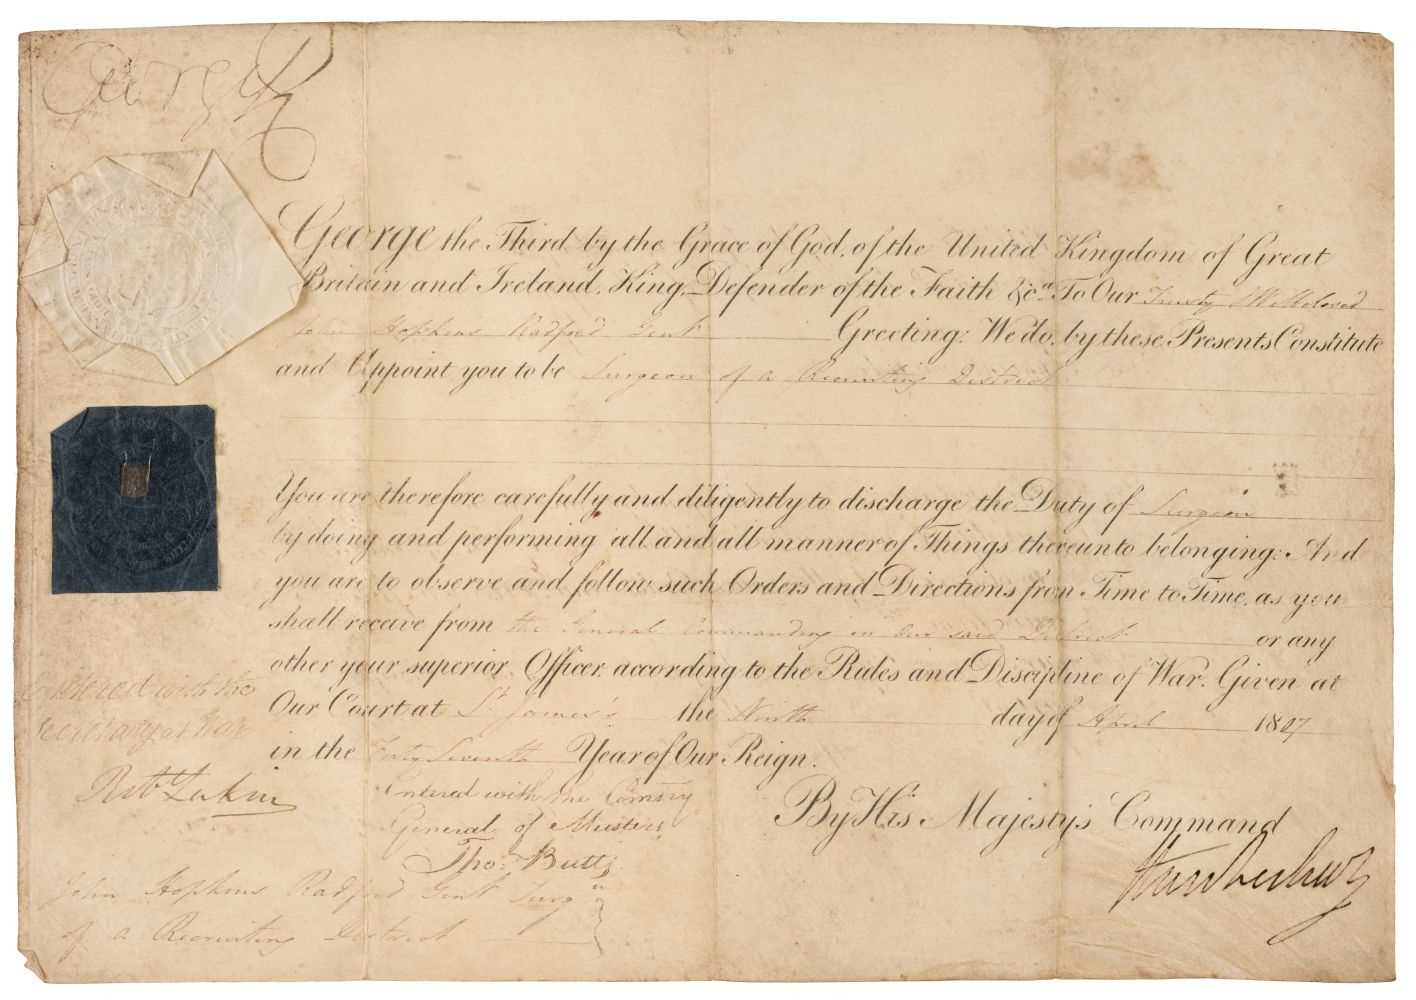 George R
George the Third by the Grace of God, of the United Kingdom of Great
Britain and Ireland, King, Defender of the Faith &c.a To Our Trusty & Wellbeloved
John Hopkins Radford Gent Greeting: We do, by these Presents Constitute
and Appoint you to be Surgeon of a Recruiting District
You are therefore carefully and diligently to discharge the Duty of Surgeon
by doing and performing all and all manner of Things thereunto belonging: And
you are to observe and follow such Orders and Directions from Time to Time, as you
shall receive from the General Commanding in our said District or any
other your superior Officer, according to the Rules and Discipline of War. Given at
Our Court at St James's the Ninth day of April 1807
in the Forty Seventh Year of Our Reign.
By His Majesty's Command
Entered with the
Secretary at War
Entered with the Comsry
General of Musters
Tho.s Butts
John Hopkins Radford Gent Surg.n
of a Recruiting District